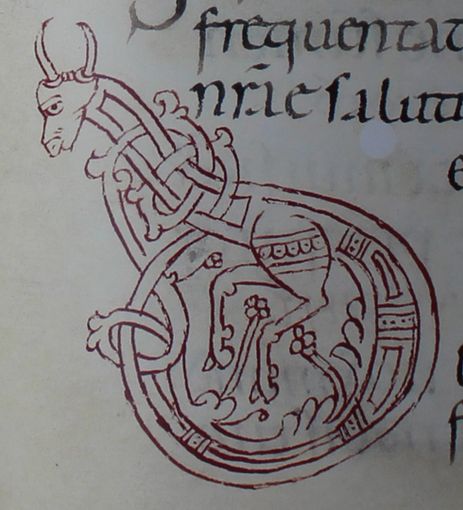 frequentat
nr̄ae saluti
e